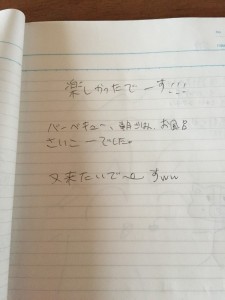 楽しかったでーす!!!
バーベキュー、朝ごはん、お風呂
さいこーでした。
又来たいで〜すww